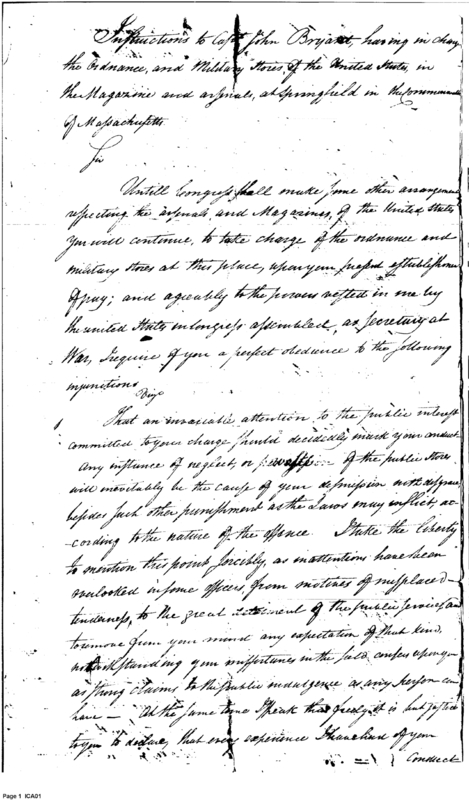 Instructions to Capt John Bryant, having in charge
the Ordnance, and Military Stores of the United States, in
the Magazine and arsenals, at Springfield in the Commonwealth
of Massachusetts
Sir
Untill Congress shall make some other arrangement
respecting the arsenals and Magazines, of the United States
you will continue, to take charge of the ordnance and
military stores at this place, upon your present establishment
of pay; and agreeably to the powers vested in me by
the united States in Congress assembled, as Secretary at
War, I require of you a perfect obedience to the following
injunctions
Viz
That an invariable attention to the public interest
committed to your charge should decidedly mark your conduct
any instance of neglect, or of the public Stores
will inevitably be the cause of your dismission with disgrace
besides such other punishment as the Laws may inflict, ac-
-cording to the nature of the offence. I take the liberty
to mention this point forcibly, as inattentions have been
overlooked in some officers, from motives of misplaced
tenderness, to the great detriment of the public service, an
to remove from your mind any expectation of that kind.
notwithstanding your misfortunes in the field confer upon you
as strong claims to the public indulgence as any person can
have — At the same time I speak thus freely it is but justice
to you to declare, that every experience I have had of your
Conduct
Page 1 ICA01